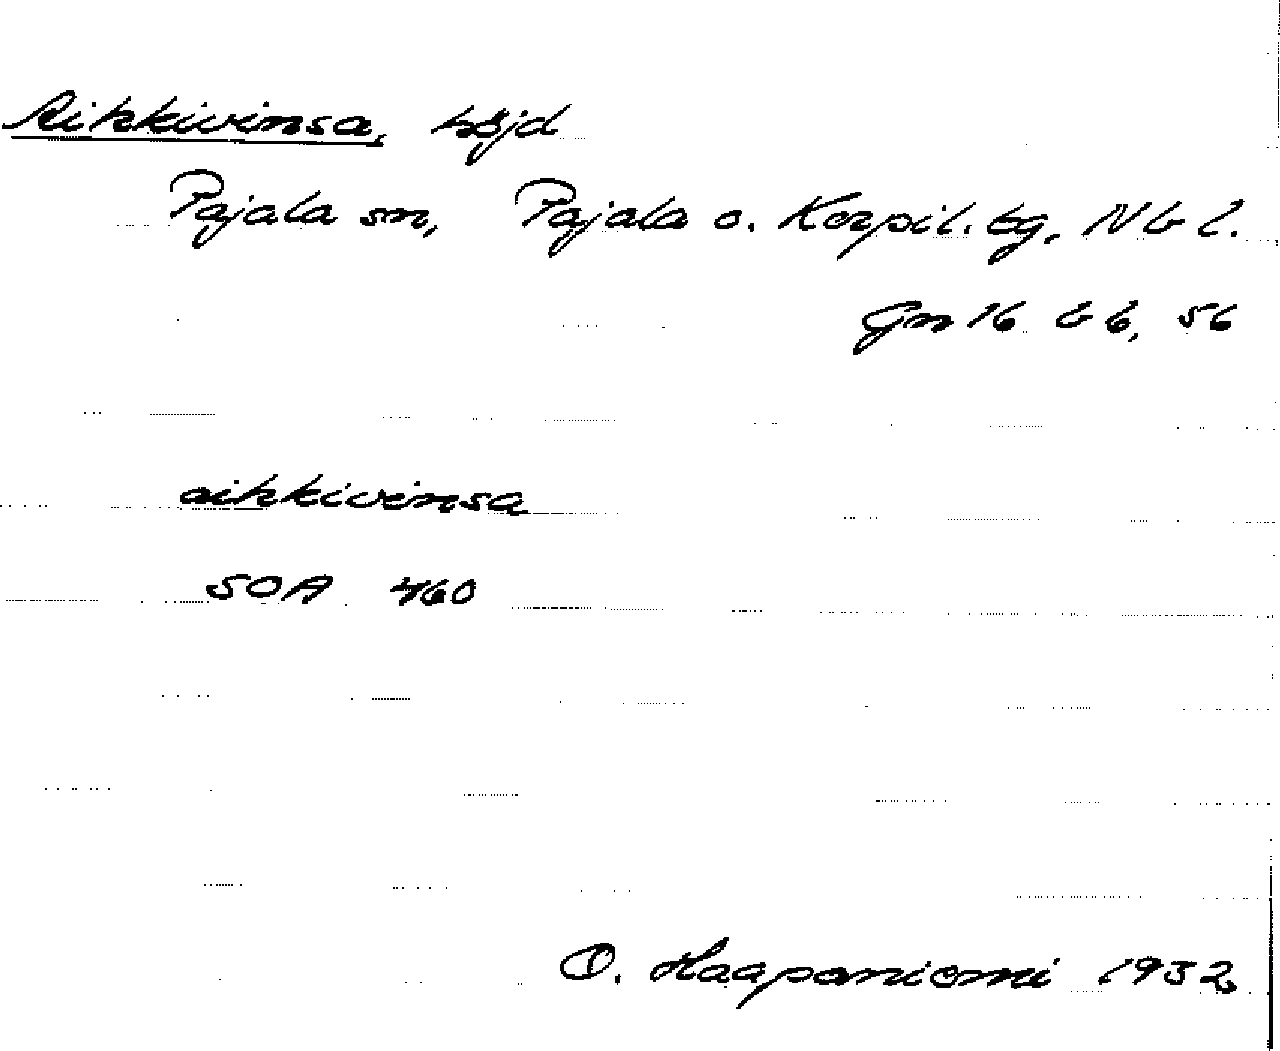 Aihkivinsa, höjd
Pajala sn, Pajala o. Korpil. tg, Nb l.
Gn 16 b 6, 56
aihkivinsa
SOA 460
O. Haapaniemi 1932